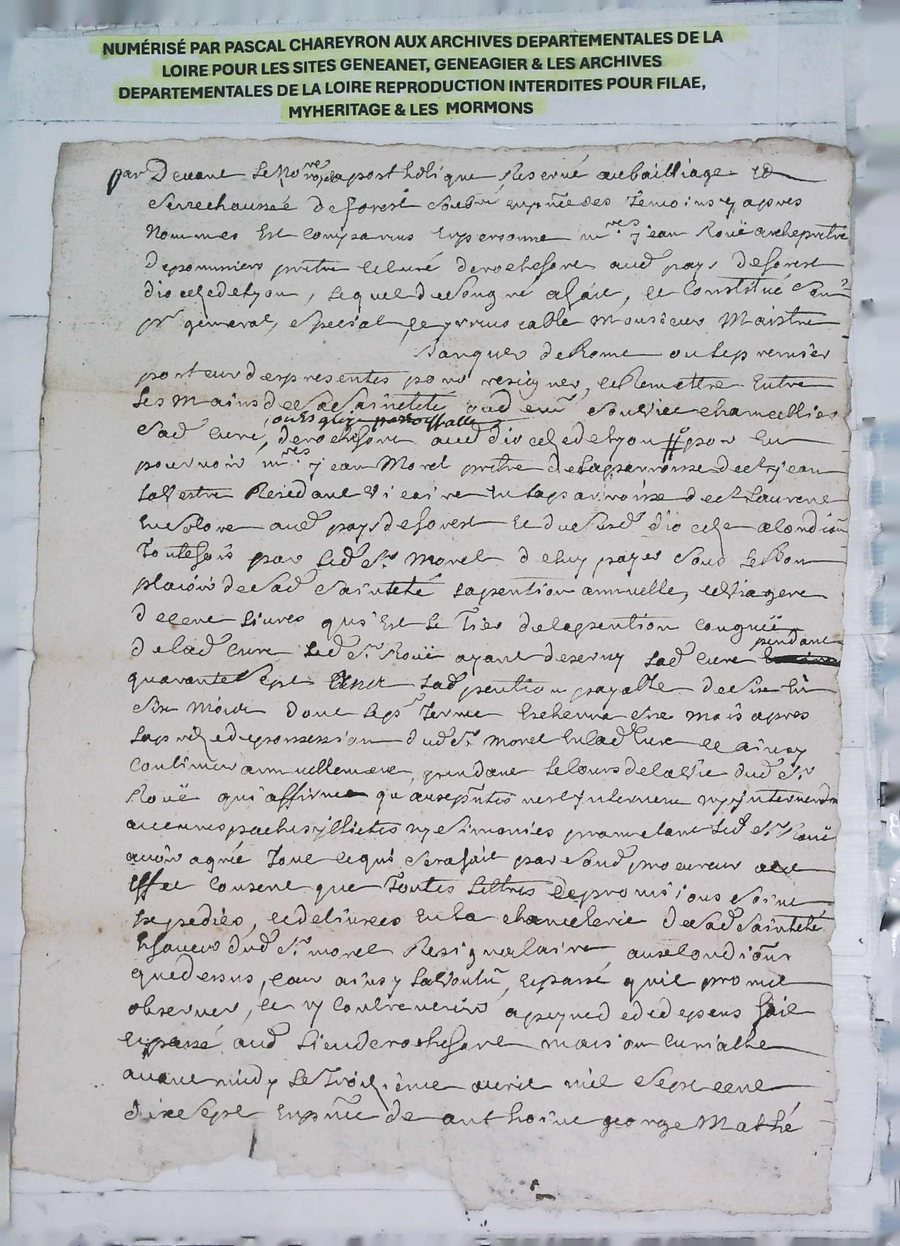 NUMÉRISÉ PAR PASCAL CHAREYRON AUX ARCHIVES DEPARTEMENTALES DE LA
LOIRE POUR LES SITES GENEANET, GENEAGIER & LES ARCHIVES
DEPARTEMENTALES DE LA LOIRE REPRODUCTION INTERDITES POUR FILAE,
MYHERITAGE & LES MORMONS
par Devant Le No.re royal apostholique Reservé au bailliage Et
Senechaussée de forest et en p̃nce des Temoins cy apres
Nommes Est Comparus En personne m.re jean Rouë archeprêtre
De pommiers prêtre et curé de rochefort aud pays de forest
diocese de Lyon, Lequel de son gré a fait, et Constitué Son
pr. general, especial, et irrevocable Monsieur Maistre
Banquier de Rome ou le premier
porteur des presentes pour resigner, et Remettre Entre
Les Mains de Sa Sainteté oud vice chancellier
Sad Cure, de rochefort aud diocese de Lyon pour En
pourvoir m.re jean Morel prêtre de la parroisse de St jean
Residant Vicaire En la parroisse de St Laurent
aud pays de forest Et du Susd diocese a condion
Toutefois par Led Sr Morel de luy payer Soud Le Bon
plaisir de Sad Sainteté La pention annuelle, et Viagere
De cent Livres qui Est Le Tier de la pention Congruë
De lad Cure Led Sr Rouë ayant deservy Lad Cure pendant
quarante Sept Lad pention payable de Six En
Six Mois Dont Le pr Terme Escherra Six mois apres
La prise de possession dud Sr Morel En lad Cure et ainsy
Continuer annuellement, pendant Le Cours de la Vie dud Sr
Rouë qui affirme qu'aux p̃ntes n'est Intervenu ny Interviendra
aucunes paches illicites ny Simonies promettant Led Sr Rouë
avoir agrée Tout ce qui Sera fait par Soud procureur
Effet Consent que Toutes Lettres de provisions Soint
Expediés, et delivrées En La chancelerie de Sad Sainteté
En faveur dud Sr morel Resignataire, aux Condions
que dessus, Car ainsy La Voulu, Et passé qu'il promet
observer, et ny Contrevenir a peyne de de depens fait
Et passé aud Lieu de rochefort maison Curialle
avant midy Le Troisième avril mil Sept cent
dixe Sept En p̃nce de anthoine george Mathé